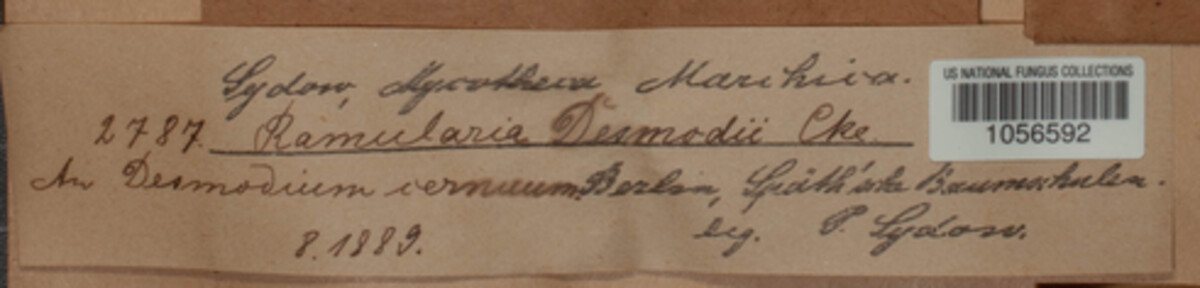 Sydow, Mycotheca Marchica.
2787. Ramularia Desmodii Cke.
An Desmodium cernuum. Berlin, Späth'sche Baumschulen.
8.1889. leg. P. Sydow.
US NATIONAL FUNGUS COLLECTIONS
1056592